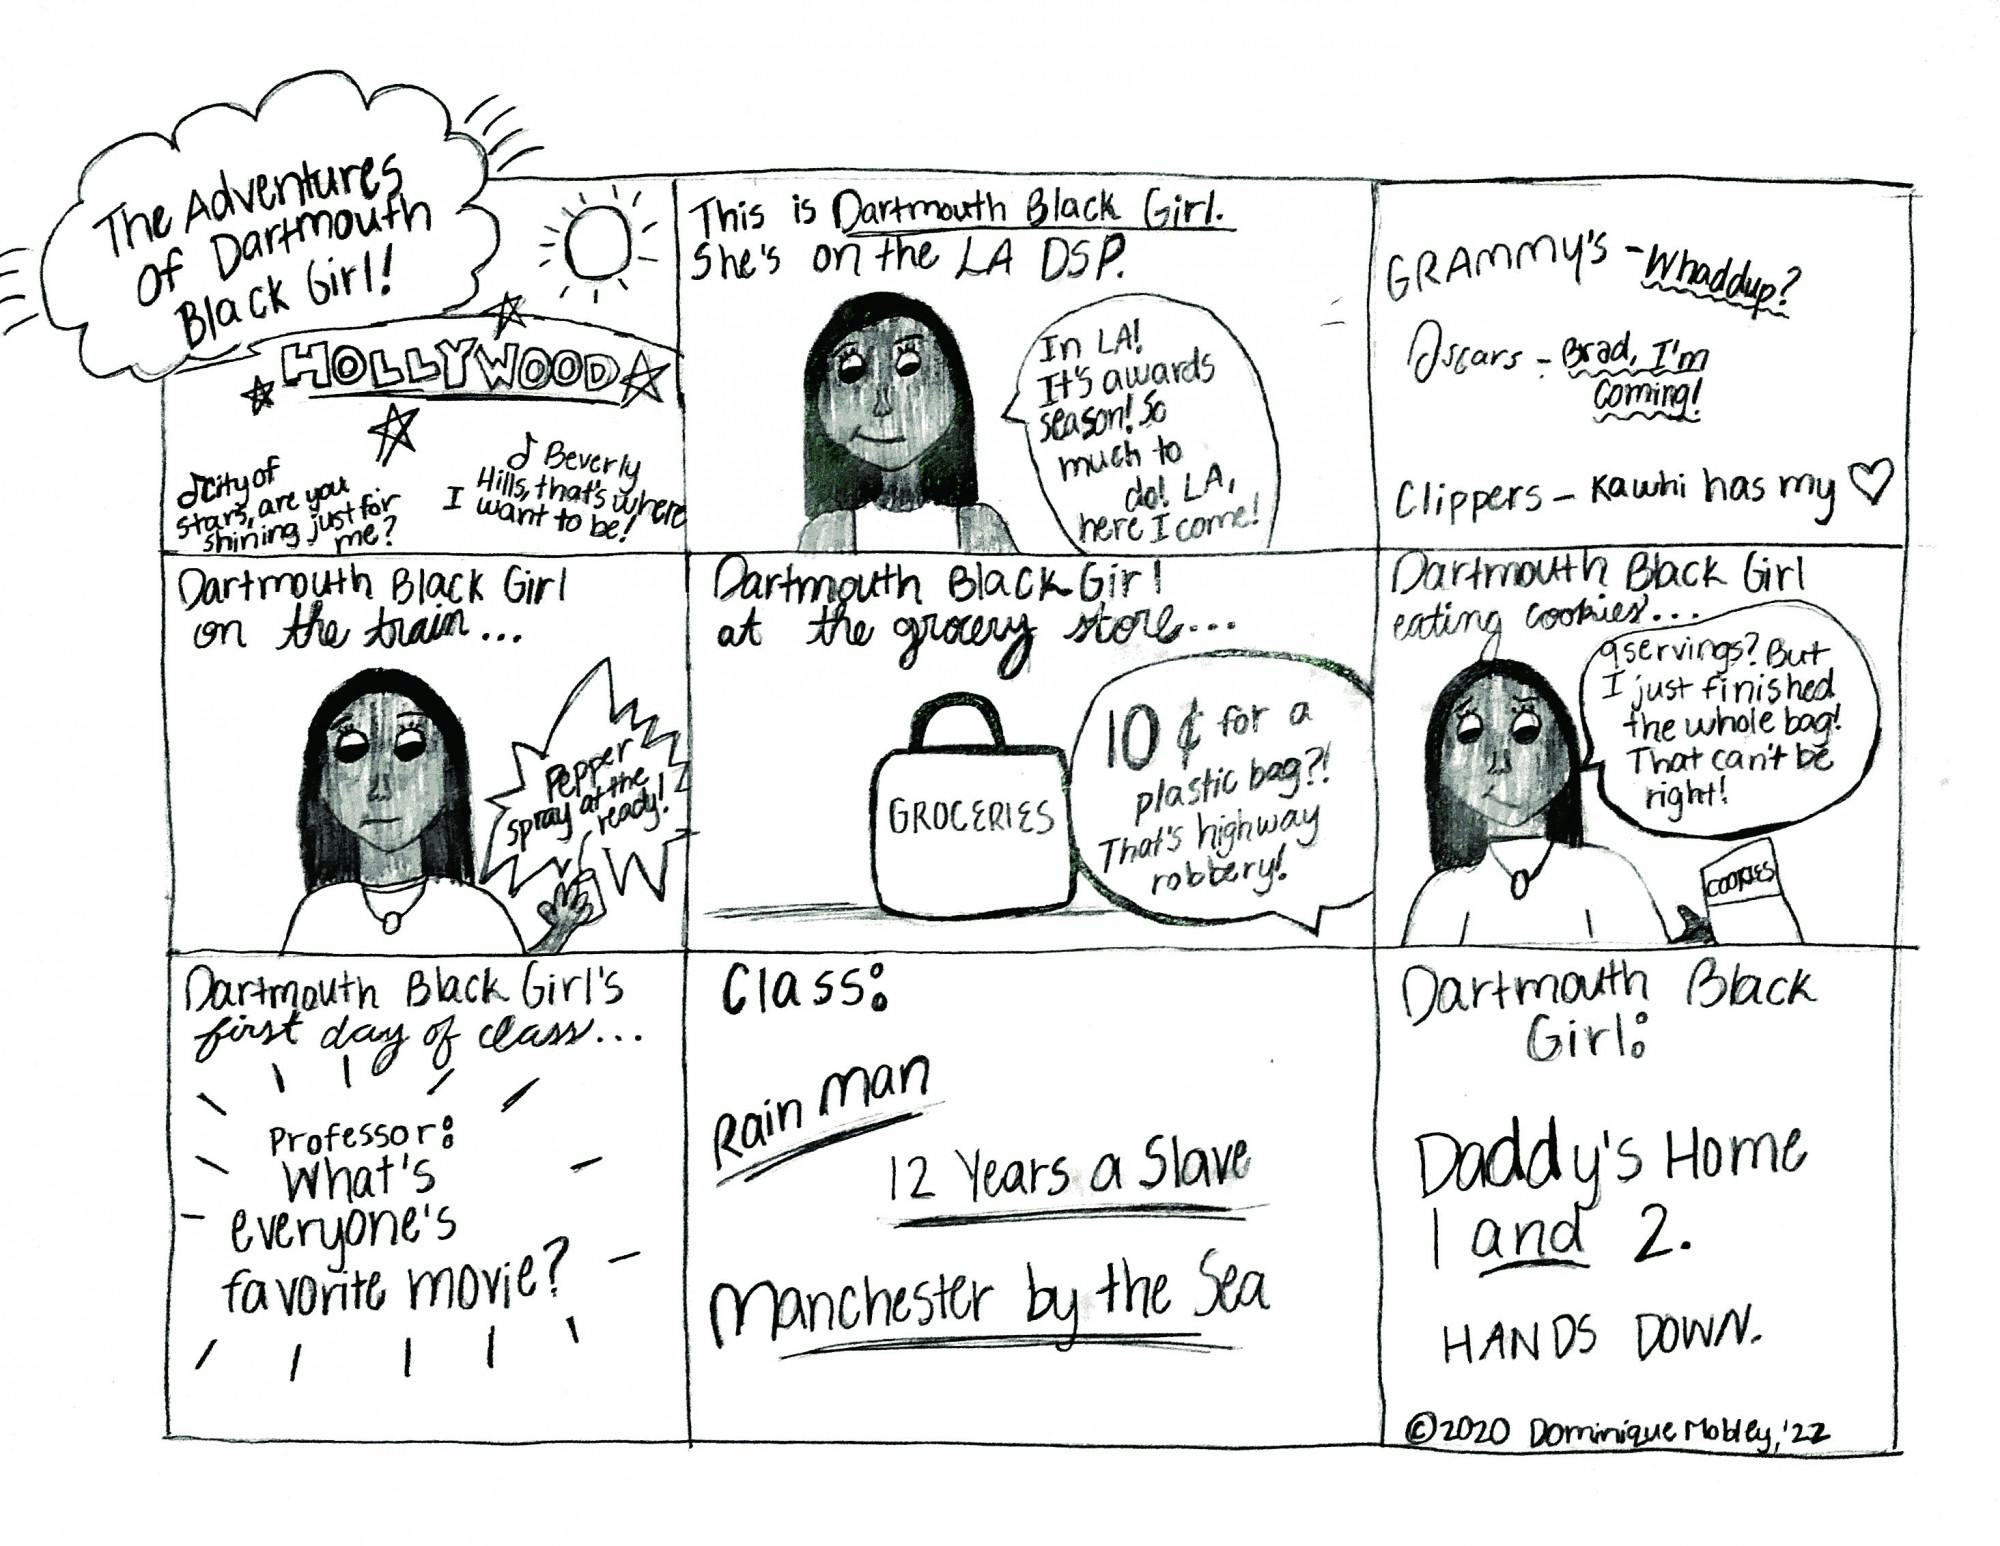 The Adventures
of Dartmouth
Black Girl!
HOLLYWOOD
♪City of
stars, are you
shining just for
me?
♪ Beverly
Hills, that's where
I want to be!
This is Dartmouth Black Girl.
She's on the LA DSP.
In LA!
It's awards
season! So
much to
do! LA,
here I come!
GRAMMY'S - Whaddup?
Oscars - Brad, I'm
Coming!
Clippers - Kawhi has my ♡
Dartmouth Black Girl
on the train...
Pepper
spray at the
ready!
Dartmouth Black Girl
at the grocery store...
GROCERIES
10 ¢ for a
plastic bag?!
That's highway
robbery!
Dartmouth Black Girl
eating cookies...
9 servings? But
I just finished
the whole bag!
That can't be
right!
COOKIES
Dartmouth Black Girl's
first day of class...
Professor:
What's
everyone's
favorite movie?
Class:
Rain Man
12 Years a Slave
Manchester by the Sea
Dartmouth Black
Girl:
Daddy's Home
1 and 2.
HANDS DOWN.
©2020 Dominique Mobley,'22